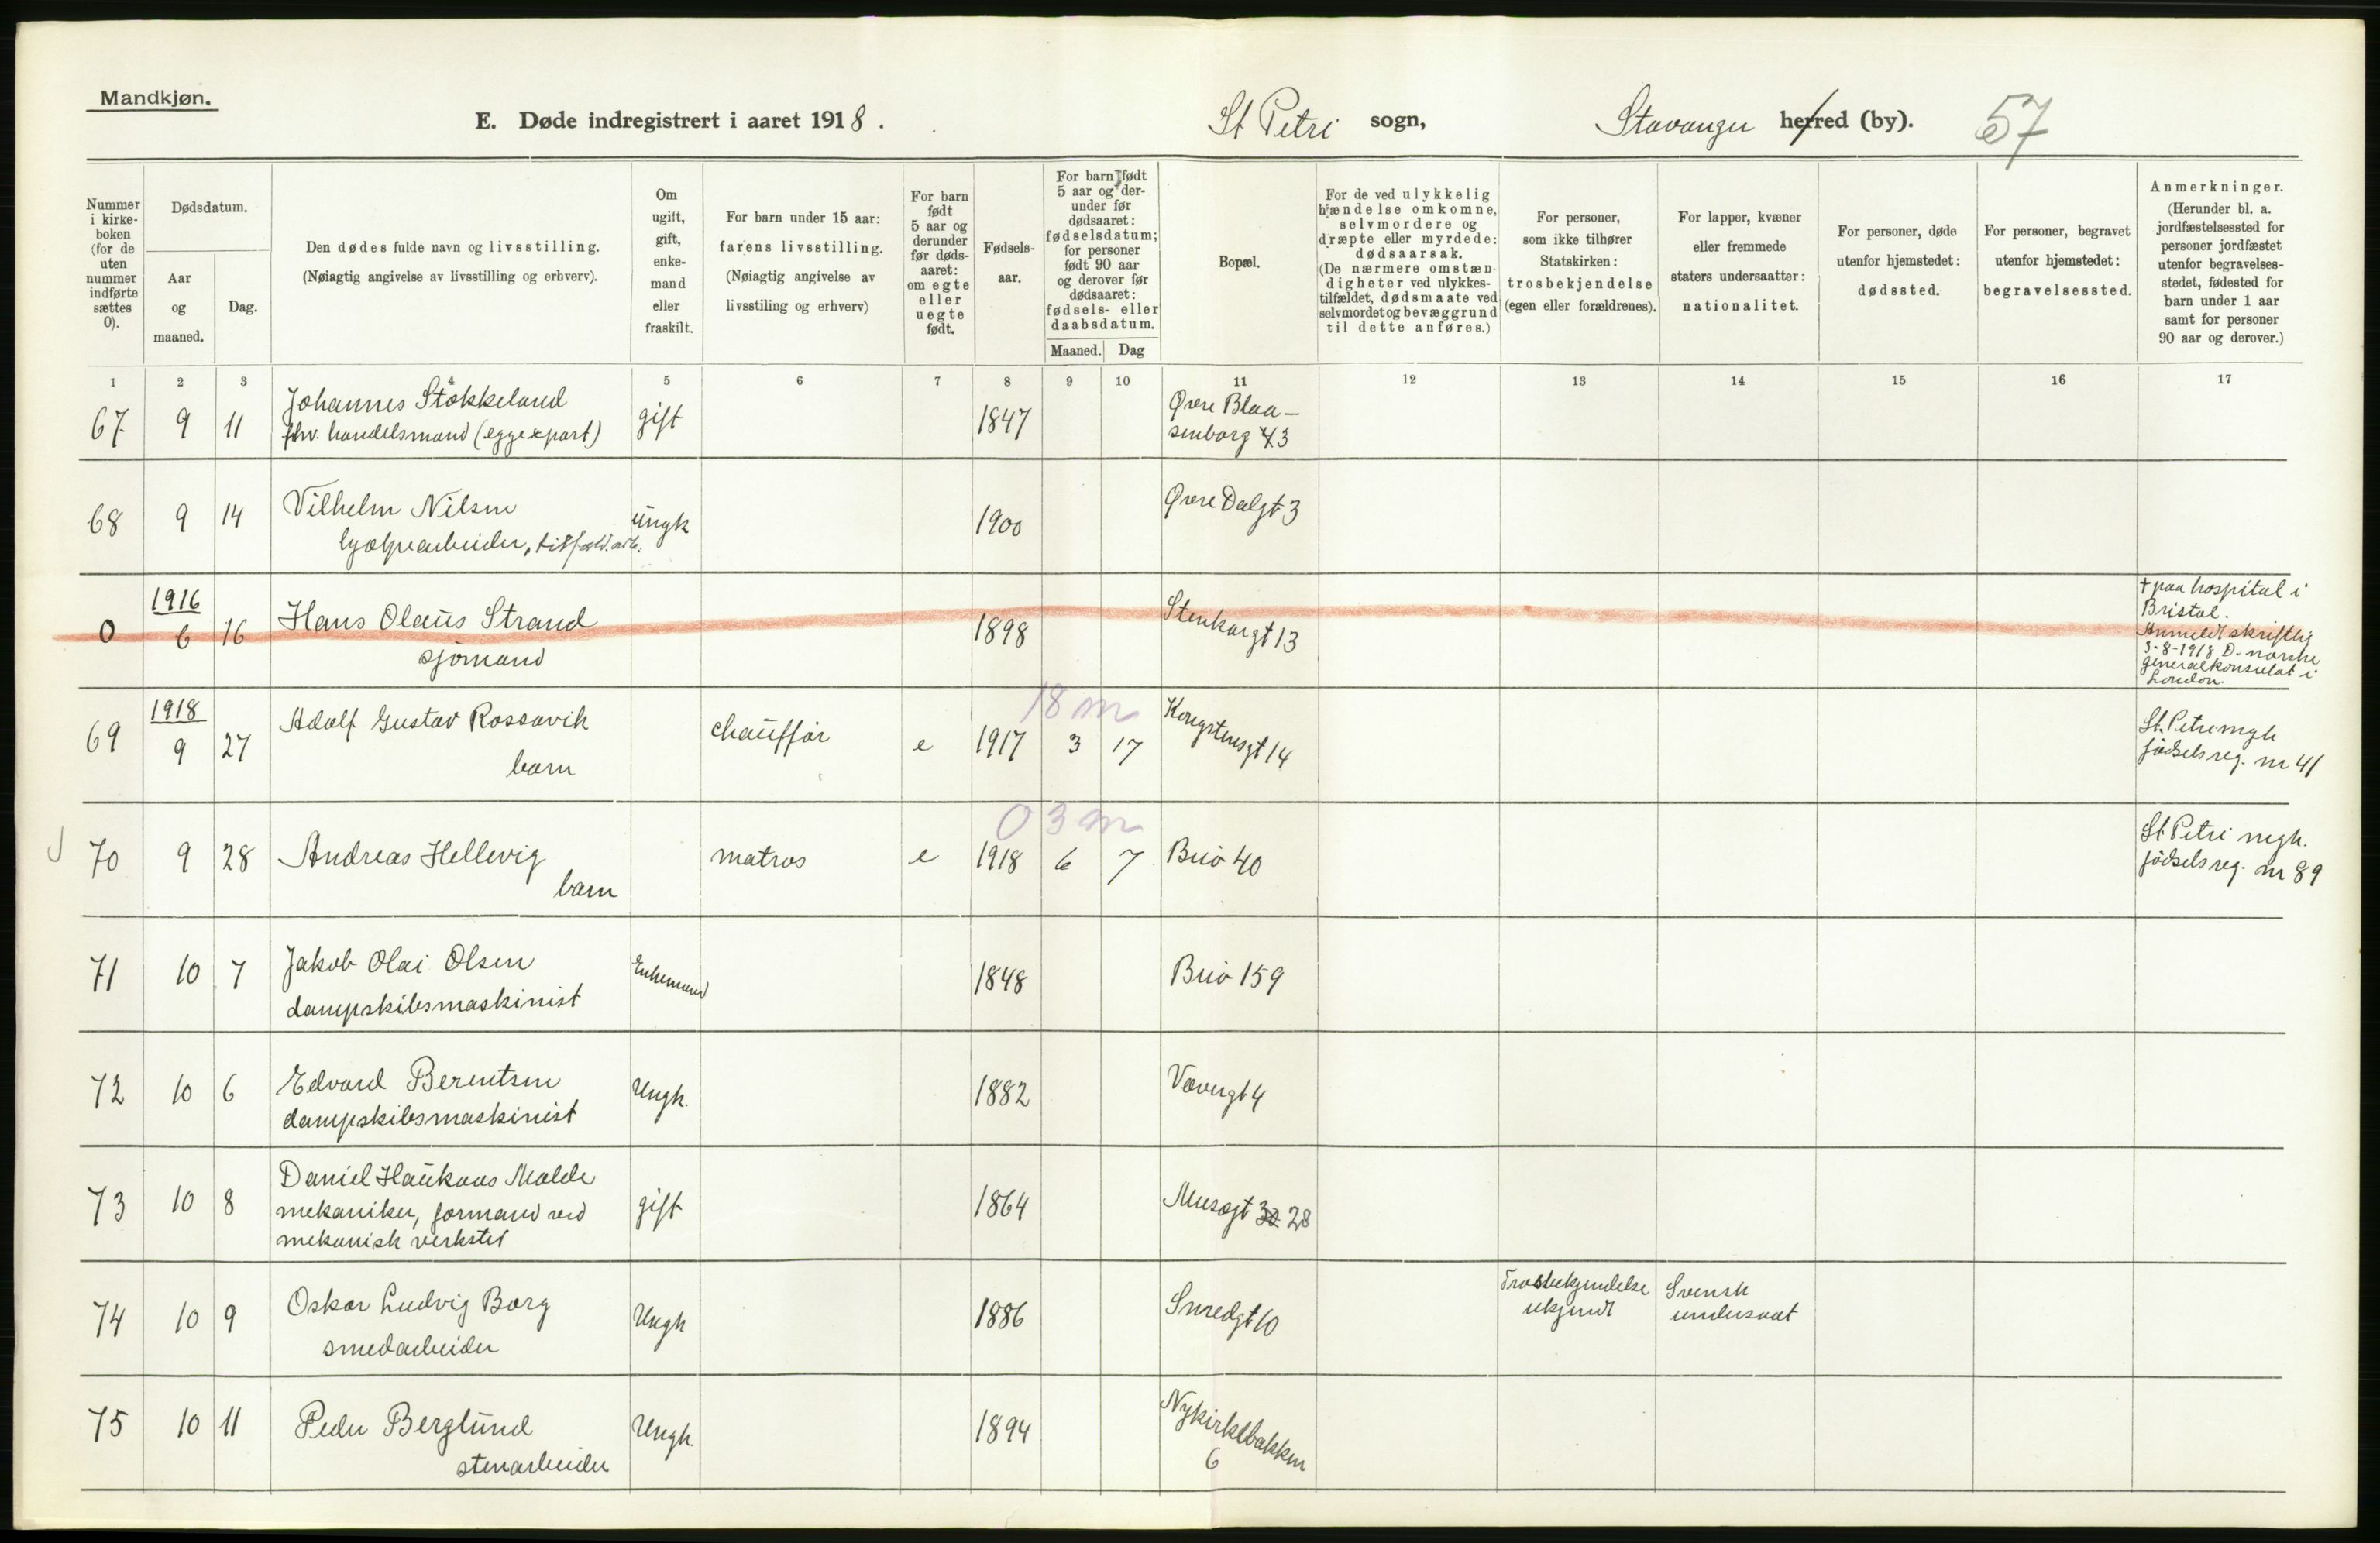 Mandkjøn.
E. Døde indregistrert i aaret 1918.
St Petri sogn,
Stavanger herred (by).
57
Nummer i kirke-boken (for de uten nummer indførte sættes 0).
Dødsdatum.
Aar og maaned.
Dag.
Den dødes fulde navn og livsstilling.
(Nøiagtig angivelse av livsstilling og erhverv).
Om ugift, gift, enke-mand eller fraskilt.
For barn under 15 aar: farens livsstilling.
(Nøiagtig angivelse av livsstiling og erhverv)
For barn født 5 aar og derunder før døds-aaret: om egte eller uegte født.
Fødsels-aar.
For barn født 5 aar og der-under før dødsaaret: fødselsdatum; for personer født 90 aar og derover før dødsaaret: fødsels- eller daabsdatum.
Maaned. Dag
Bopæl.
For de ved ulykkelig hændelse omkomne, selvmordere og dræpte eller myrdede: dødsaarsak.
(De nærmere omstæn-digheter ved ulykkes-tilfældet, dødsmaate ved selvmordet og bevæggrund til dette anføres.)
For personer, som ikke tilhører Statskirken: trosbekjendelse (egen eller forældrenes).
For lapper, kvæner eller fremmede staters undersaatter: nationalitet.
For personer, døde utenfor hjemstedet: dødssted.
For personer, begravet utenfor hjemstedet: begravelsessted.
Anmerkninger.
(Herunder bl. a. jordfæstelsessted for personer jordfæstet utenfor begravelses-stedet, fødested for barn under 1 aar samt for personer 90 aar og derover.)
1 2 3 4 5 6 7 8 9 10 11 12 13 14 15 16 17
67 9 11 Johannes Stokkeland gift 1847 Øvre Blaa-
fhv. handelsmand (eggexport) senborg 43
68 9 14 Vilhelm Nilsen ungk 1900 Øvre Dalgt 3
hjælpearbeider, tilfæld. arb.
1916
0 6 16 Hans Olaus Strand 1898 Stenkargt 13
sjømand
† paa hospital i
Bristol.
Anmeldt skriftlig
3-8-1918 D. norske
generalkonsulat i
London.
1918
18 m
69 9 27 Adolf Gustav Rossavik chauffør e 1917 3 17 Kongstensgt 14
barn
St. Petri mgh
fødselsreg. nr 41
03 m
70 9 28 Andreas Hellevig matros e 1918 6 7 Buø 40
barn
St. Petri mgh.
fødselsreg. nr 89
71 10 7 Jakob Olai Olsen Enkemand 1848 Buø 159
dampskibsmaskinist
72 10 6 Edvard Berentsen Ungk. 1882 Vævergt 4
dampskibsmaskinist
73 10 8 Daniel Haukaas Malde gift 1864 Musegt 30 28
mekaniker, formand ved
mekanisk verksted
74 10 9 Oskar Ludvig Borg Ungk 1886 Smedgt 10
smedarbeider
Trosbekjendelse
ukjendt
Svensk
undersaat
75 10 11 Peder Berglund Ungk. 1894 Nykirkebakken
stenarbeider 6